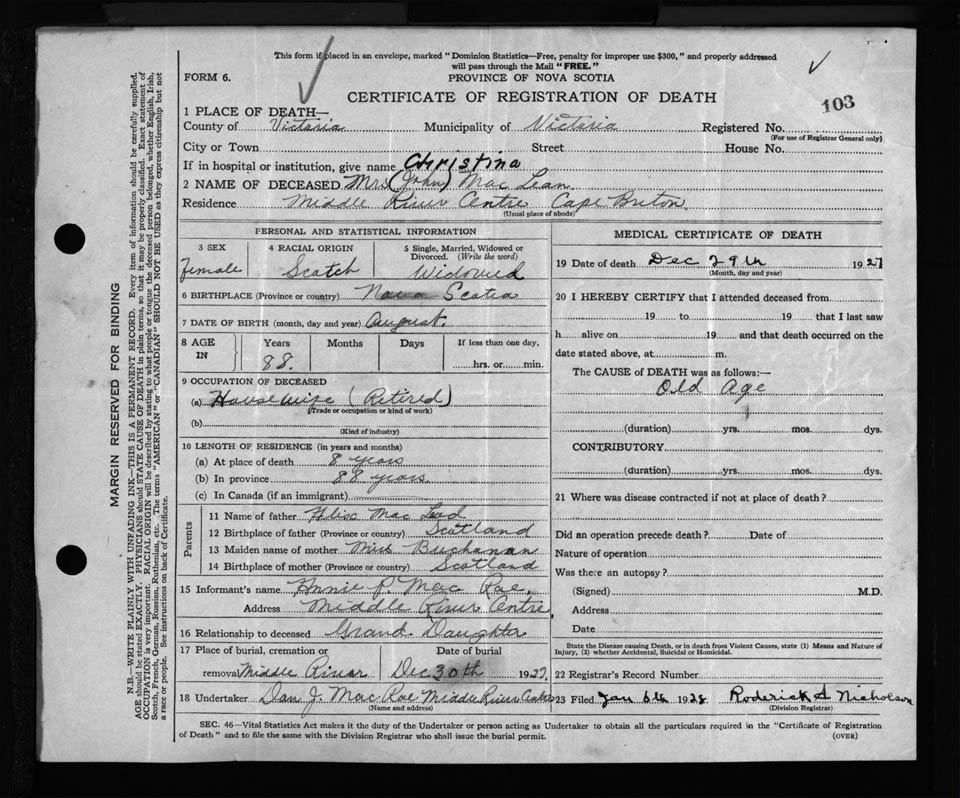 This form if placed in an envelope, marked "Dominion Statistics—Free, penalty for improper use $300," and properly addressed
will pass through the Mail "FREE."
FORM 6.
PROVINCE OF NOVA SCOTIA
CERTIFICATE OF REGISTRATION OF DEATH
103
1 PLACE OF DEATH—
County of Victoria Municipality of Victoria Registered No.
(For use of Registrar General only)
City or Town Street House No.
If in hospital or institution, give name Christina
2 NAME OF DECEASED Mrs (John) Mac Lean
Residence Middle River Centre Cape Breton
(Usual place of abode)
PERSONAL AND STATISTICAL INFORMATION
3 SEX 4 RACIAL ORIGIN 5 Single, Married, Widowed or
Divorced. (Write the word)
Female Scotch Widowed
6 BIRTHPLACE (Province or country) Nova Scotia
7 DATE OF BIRTH (month, day and year) August.
8 AGE IN Years Months Days If less than one day,
88. hrs. or min.
9 OCCUPATION OF DECEASED
(a) Housewife (Retired)
(Trade or occupation or kind of work)
(b)
(Kind of industry)
10 LENGTH OF RESIDENCE (in years and months)
(a) At place of death 8 years
(b) In province 88 years
(c) In Canada (if an immigrant)
Parents
11 Name of father Mac Leod
12 Birthplace of father (Province or country) Scotland
13 Maiden name of mother Miss Buchanan
14 Birthplace of mother (Province or country) Scotland
15 Informant's name Annie P. Mac Rae,
Address Middle River Centre
16 Relationship to deceased Grand Daughter
17 Place of burial, cremation or Date of burial
removal Middle River Dec 30th 1927
18 Undertaker Dan J. Mac Rae Middle River
(Name and address)
MEDICAL CERTIFICATE OF DEATH
19 Date of death Dec 29th 1927
(Month, day and year)
20 I HEREBY CERTIFY that I attended deceased from
19 to 19 that I last saw
h alive on 19 and that death occurred on the
date stated above, at m.
The CAUSE of DEATH was as follows:—
Old Age
(duration) yrs. mos. dys.
CONTRIBUTORY
(duration) yrs. mos. dys.
21 Where was disease contracted if not at place of death?
Did an operation precede death? Date of
Nature of operation
Was there an autopsy?
(Signed) M.D.
Address
Date
State the Disease causing Death, or in death from Violent Causes, state (1) Means and Nature of
Injury, (2) whether Accidental, Suicidal or Homicidal.
22 Registrar's Record Number
23 Filed Jan 6th 1928 Roderick S Nicholson
(Division Registrar)
SEC. 46—Vital Statistics Act makes it the duty of the Undertaker or person acting as Undertaker to obtain all the particulars required in the "Certificate of Registration
of Death" and to file the same with the Division Registrar who shall issue the burial permit. (OVER)
MARGIN RESERVED FOR BINDING
N.B.—WRITE PLAINLY WITH UNFADING INK—THIS IS A PERMANENT RECORD. Every item of information should be carefully supplied.
AGE should be stated EXACTLY. PHYSICIANS should STATE CAUSE OF DEATH in plain terms, so that it may be properly classified. Exact statement of
OCCUPATION is very important. RACIAL ORIGIN will be described by stating to what people or tongue the deceased person belonged, whether English, Irish,
Scotch, French, German, Russian, Ruthenian, etc. The terms "AMERICAN" or "CANADIAN" SHOULD NOT BE USED as they express citizenship but not
a race or people. See instructions on back of Certificate.